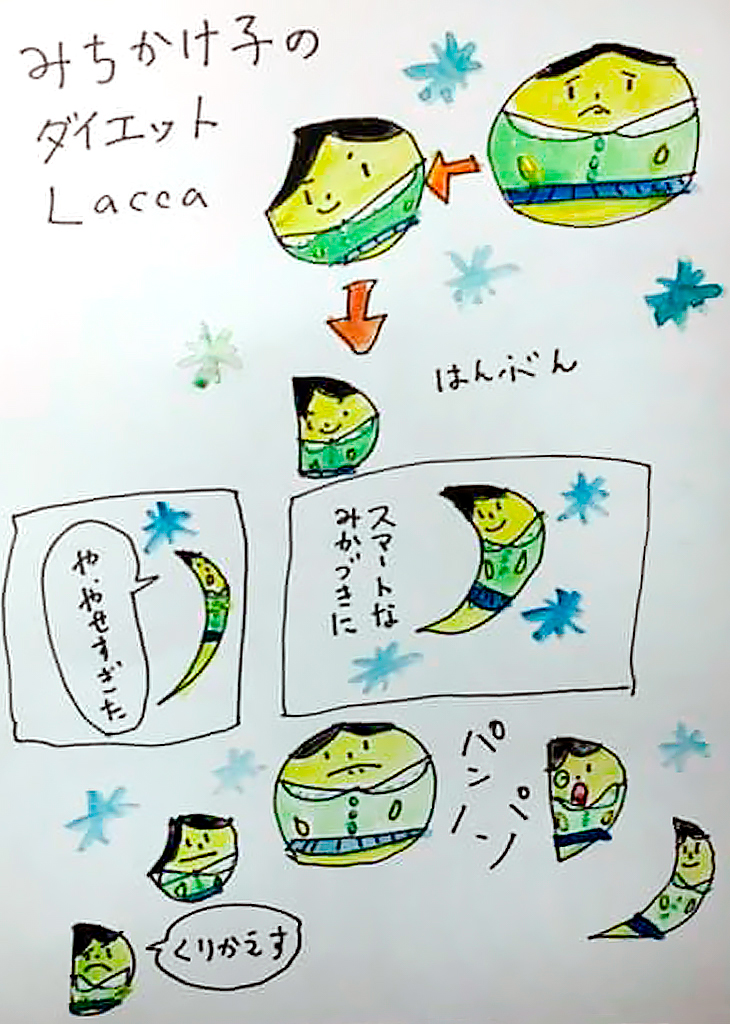 みちかけ子の
ダイエット
Lacca
はんぶん
スマートな
みかづきに
や、やせすぎた
パンパン
くりかえす